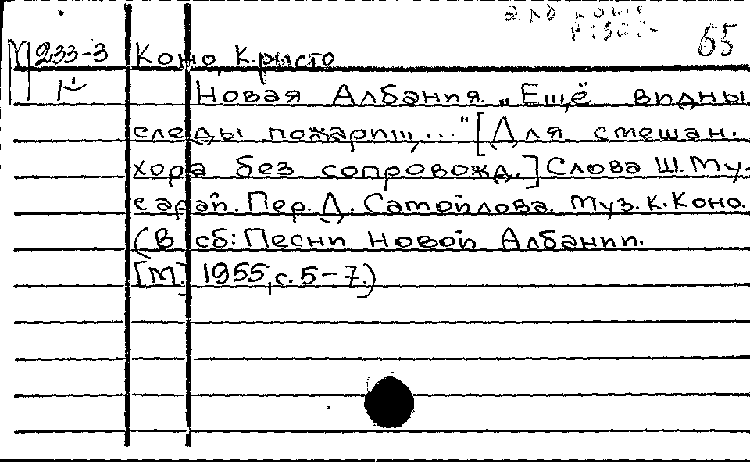 65
М 233-3 Коно, Кристо
Новая Албания „Ещё видны
следы пожарищ..." [Для смешан.
хора без сопровожд.] Слова Ш. Му-
сарай. Пер. Д. Самойлова. Муз. К. Коно.
(В сб: Песни Новой Албании.
[М.] 1955, с. 5-7.)